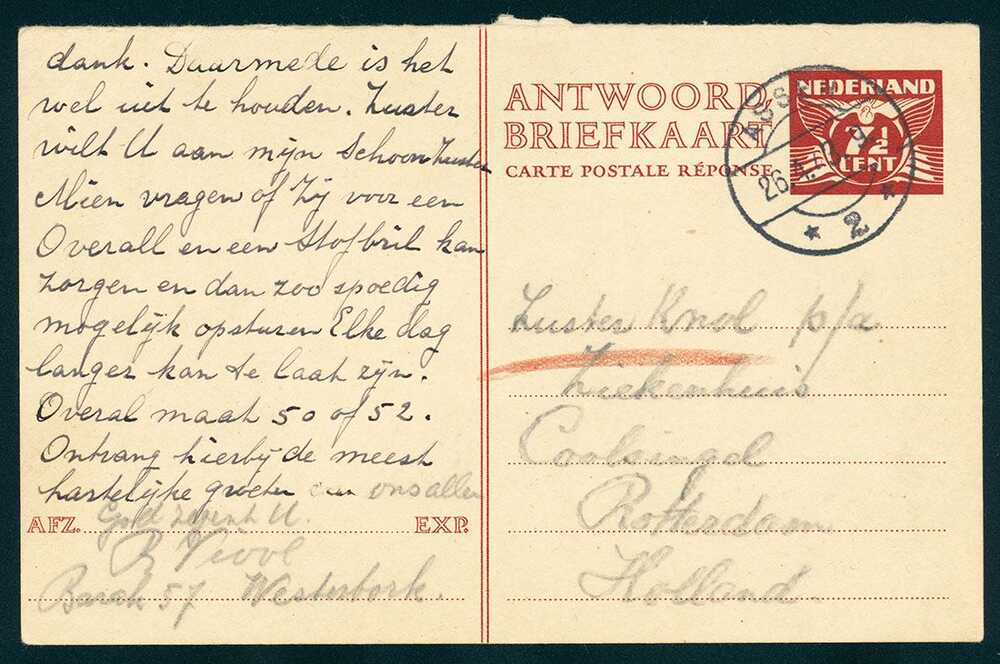 dank. Daarmede is het
wel uit te houden. Zuster
wilt U aan mijn Schoon Zuster
Mien vragen of Zij voor een
Overall en een Stofbril kan
zorgen en dan zoo spoedig
mogelijk opsturen Elke dag
langer kan te laat zijn.
Overal maat 50 of 52.
Ontvang hierbij de meest
hartelijke groeten van ons allen
AFZ.
U.
EXP.
Barak 57 Westerbork.
ANTWOORD,
BRIEFKAART
CARTE POSTALE RÉPONSE
NEDERLAND
7½
CENT
26.4.
2
Zuster Knol p/a
Ziekenhuis
Coolsingel
Rotterdam
Holland